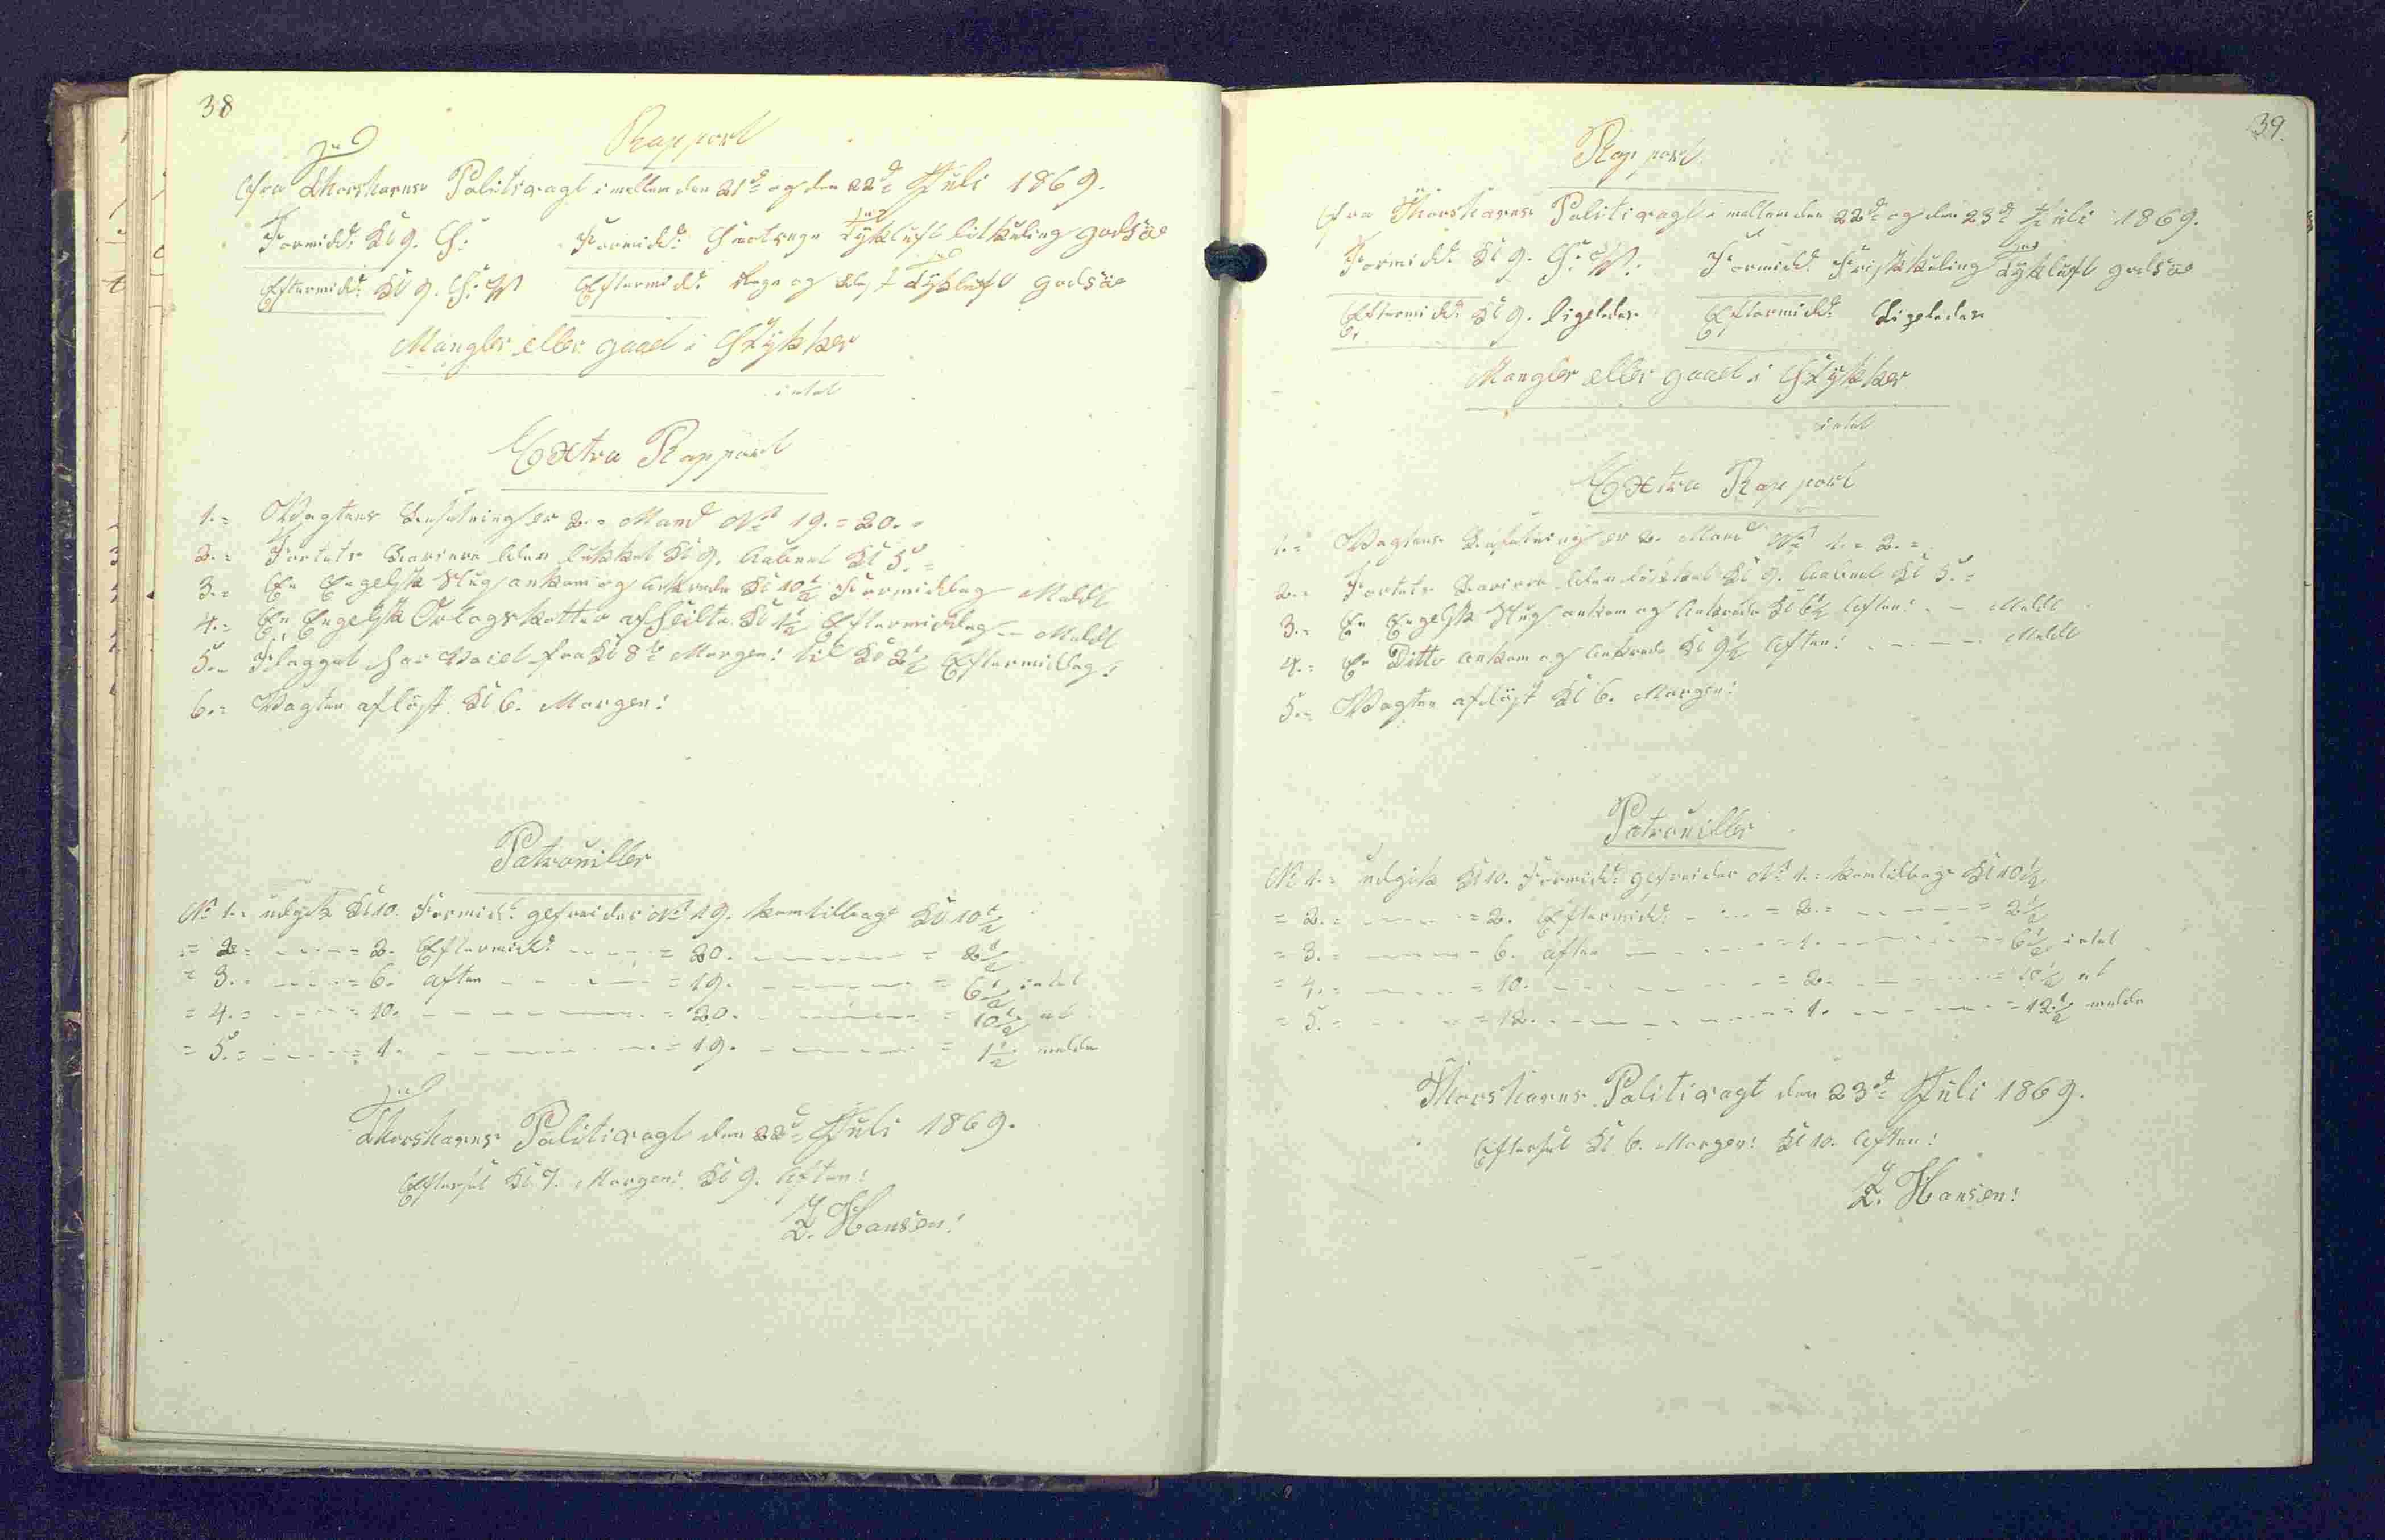 38
Rapport
fra Thorshavns Politivagt imellem den 21de og den 22de Juli 1869.
Formidd: Kl 9. S: Formidd: Smat regn Tÿkluft litkuling godsöe
Eftermidd: Kl 9. S: W Eftermidd: Regn og blæst Tÿkluft godsöe
Mangler eller gaaet i Stÿkker
intet
Extra Rapport
1. = Vagtens Besætning er 2. = Mand No 19. = 20. =
2. = Fortets Bariere blev lukket Kl 9. Aabnet Kl 5. =
3. = En Engelsk Slug ankom og Ankrede Kl 10½ Formiddag Meldt
4. = En Engelsk Orlogskotter afseilte Kl 1½ Eftermiddag - Meldt
5. = Flagget har Vaiet fra Kl 8te Morgen: til Kl 2½ Eftermiddag:
6. = Vagten aflöst Kl 6. Morgen:
Patrouiller
No 1. = udgik Kl 10. Formidd: gefreider No 19. kom tilbage Kl 10½
= 2 = - - - = 2. Eftermidd: - - - = 20. - - - = 2½
= 3. = - - - = 6. aften - - - = 19. - - - = 6½ intet
= 4. = - - - = 10. - - - = 20. - - - = 10½ at
= 5. = - - - = 1. - - - = 19. - - - = 1½ melde
Thorshavns Politivagt den 22de Juli 1869.
Eftersét Kl 7. Morgen: Kl 9. Aften:
Z. Hansen:
39.
Rapport
fra Thorshavns Politivagt imellem den 22de og den 23de Juli 1869.
Formidd: Kl 9. S: W: Formidd: Friskkuling Tÿkluft godsöe
Eftermidd: Kl 9. Ligeledes Eftermidd: Ligeledes
Mangler eller gaaet i Stÿkker
intet
Extra Rapport
1. = Vagtens Besætning er 2. Mand No 1. = 2. =
2. = Fortets Bariere blev lukket Kl 9. Aabnet Kl 5. =
3. = En Engelsk Slug ankom og Ankrede Kl 6½ Aften: - - Meldt
4. = En Ditto ankom og Ankrede Kl 9½ Aften: - - - Meldt
5. = Vagten aflöst Kl 6. Morgen:
Patrouiller
No 1. = udgik Kl 10. Formidd: gefreider No 1. = kom tilbage Kl 10½
= 2. = - - - = 2. Eftermidd: - - - = 2. = - - - = 2½
= 3. = - - - = 6. aften - - - = 1. - - - = 6½ intet
= 4. = - - - = 10. - - - = 2. - - - = 10½ at
= 5. = - - - = 12. - - - = 1. - - - = 12½ melde
Thorshavns Politivagt den 23de Juli 1869.
Eftersét Kl 6. Morgen: Kl 10. Aften:
Z. Hansen: